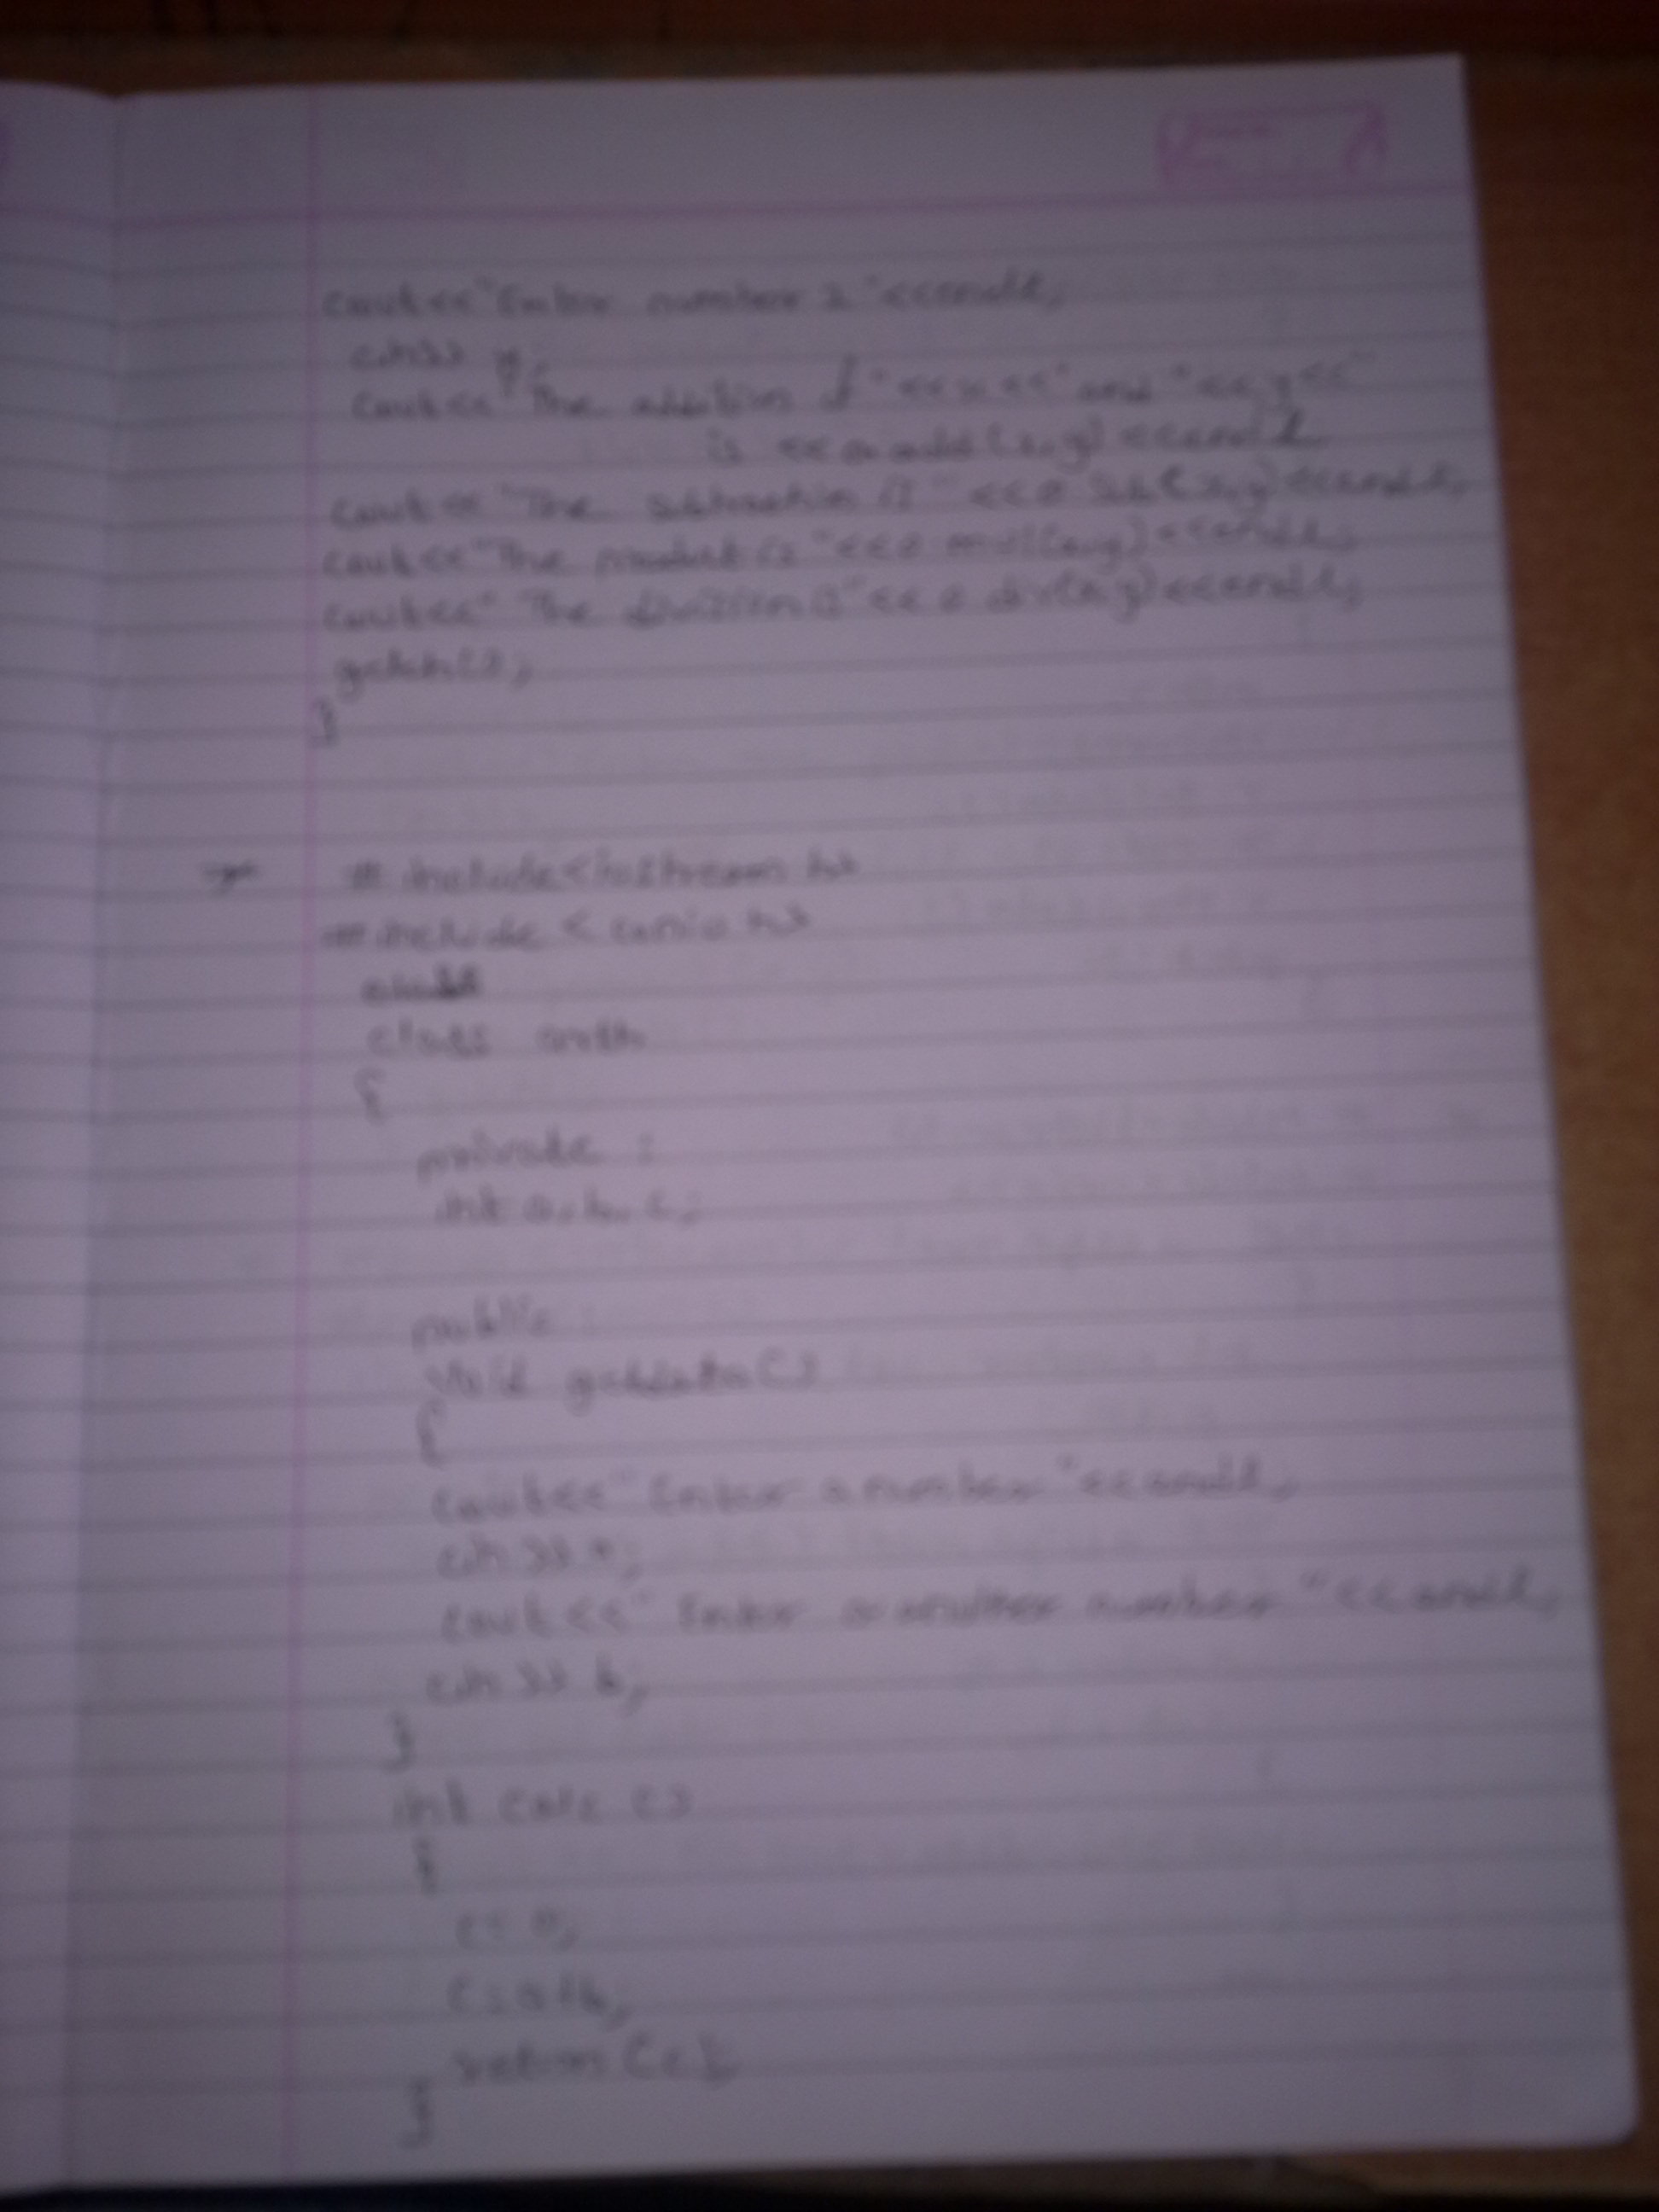 cout<<"Enter number 2"<<endl;
cin>> y;
cout<<"The addition of "<<x<<" and "<<y<<"
is <<a.add(x,y)<<endl
cout<<"The subtraction is" <<a.sub(x,y)<<endl;
cout<<"The product is "<<a.mul(x,y)<<endl;
cout<<" The division is"<<a.div(x,y)<<endl;
getch();
}
# include<iostream.h>
#include<conio.h>
class arith
{
private :
int a, b, c;
public :
void getdata()
{
cout<<" Enter a number "<<endl;
cin>>
cout<<" Enter a another number "<<endl;
cin>> b;
}
int calc ()
{
c=0;
return (c);
}